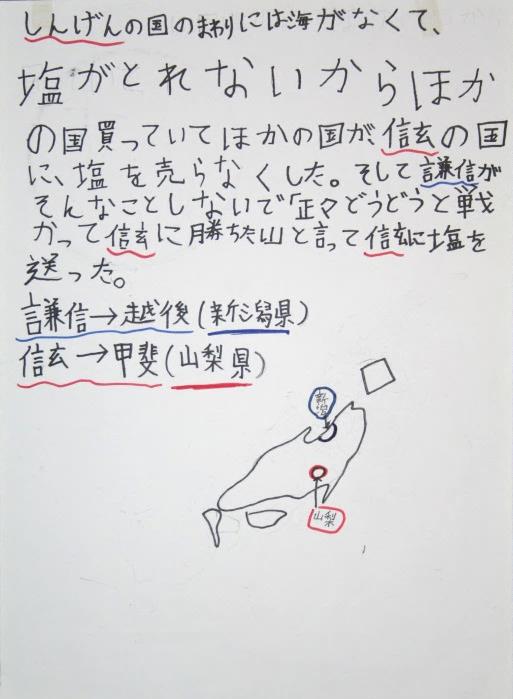 しんげんの国のまわりには海がなくて、
塩がとれないからほか
の国買っていてほかの国が、信玄の国
に、塩を売らなくした。そして謙信が
そんなことしないで「正々どうどうと戦
かって信玄に勝ちたい」と言って信玄に塩を
送った。
謙信→越後(新潟県)
信玄→甲斐(山梨県)
新潟
山梨